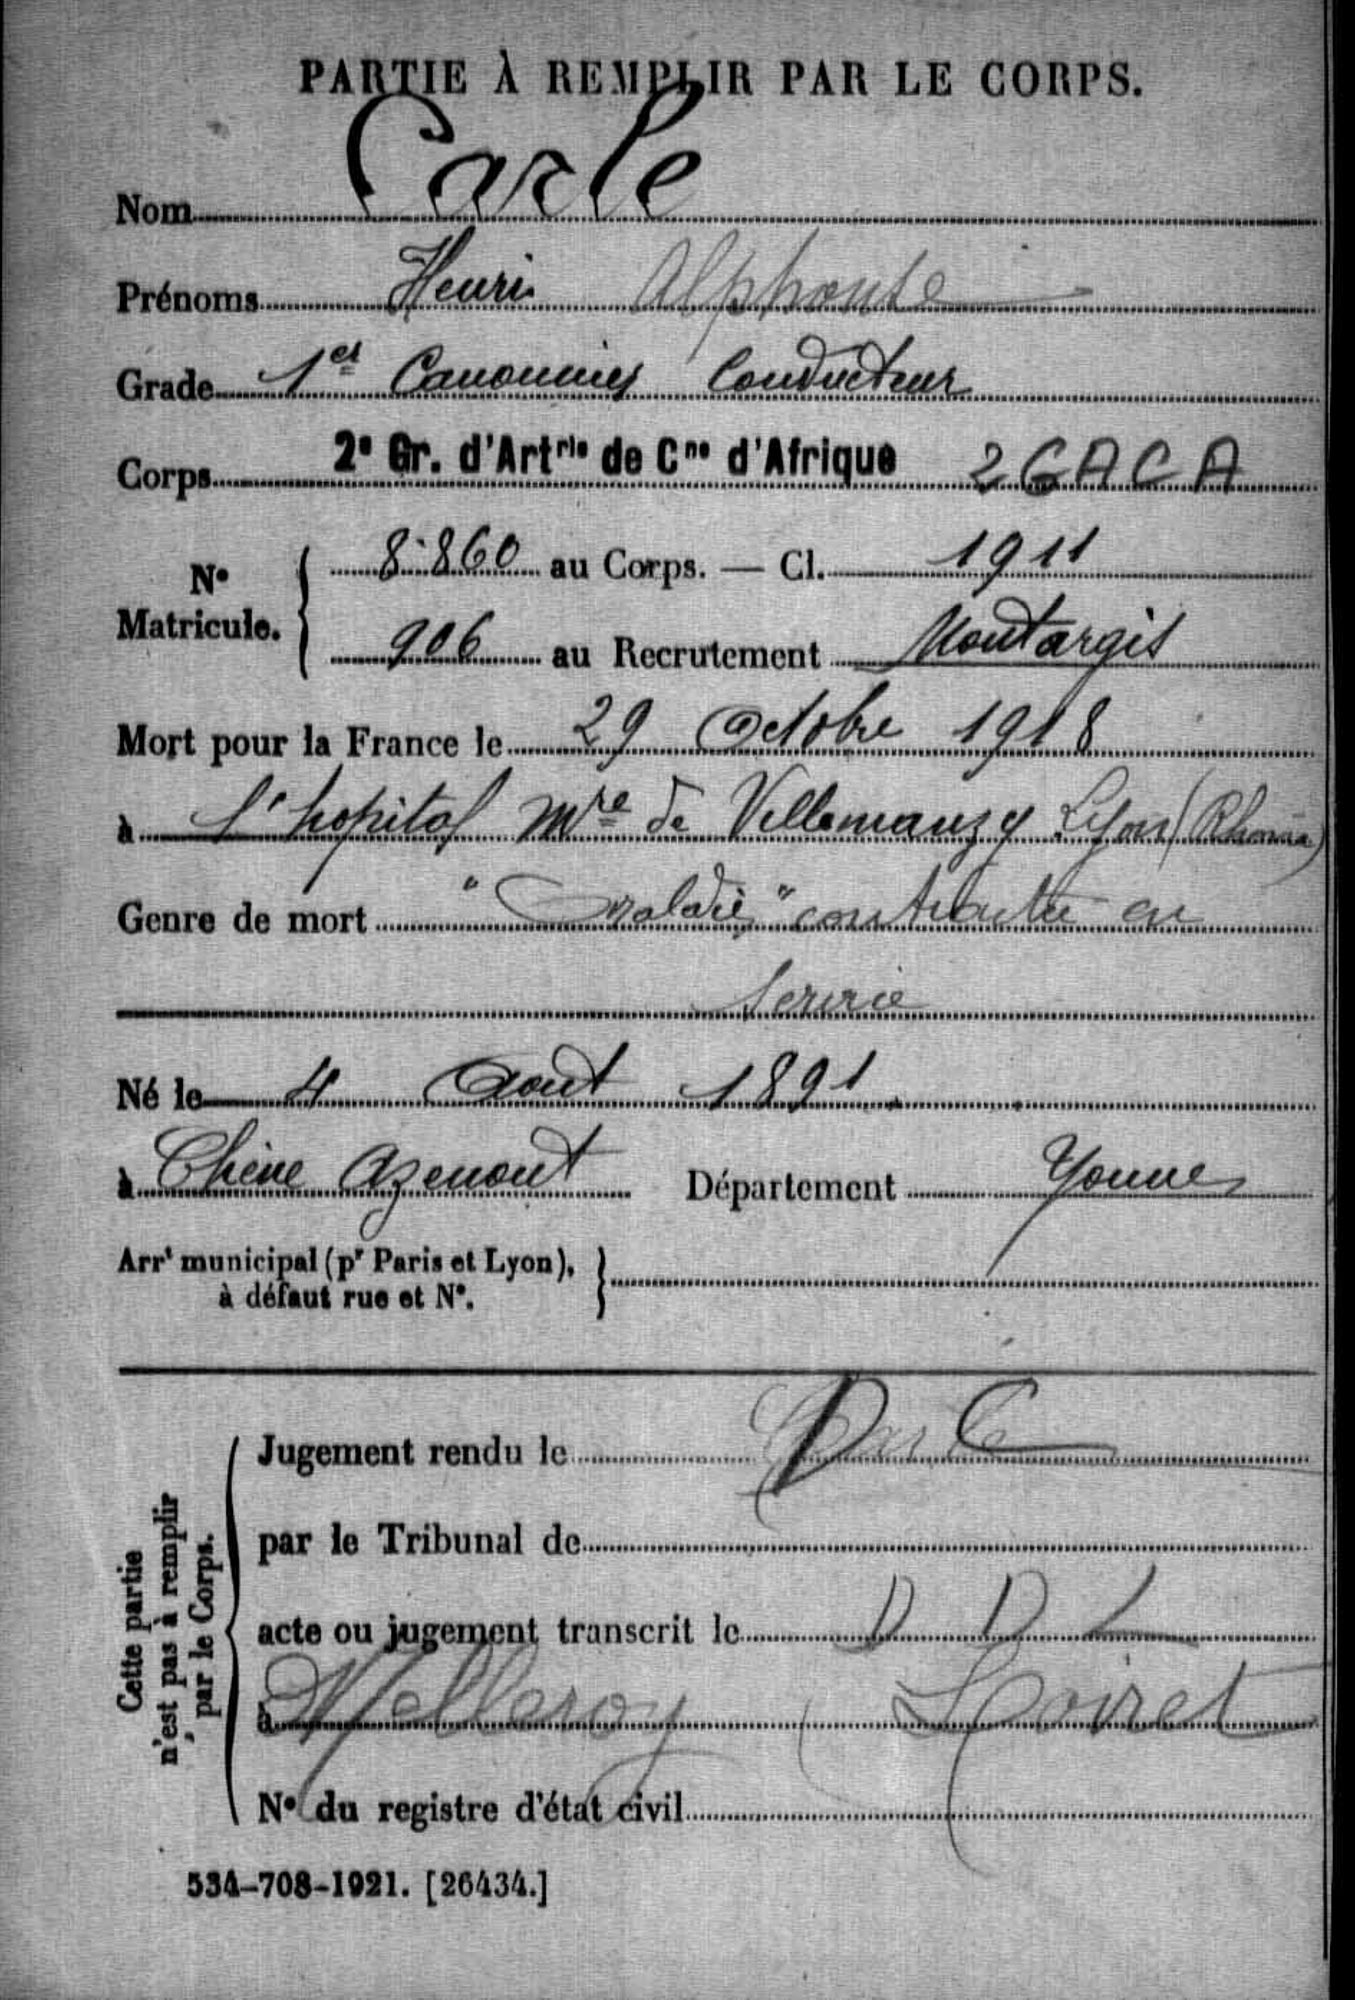 PARTIE À REMPLIR PAR LE CORPS.
Nom Carle
Prénoms Henri Alphonse
Grade 1er Canonnier Conducteur
Corps 2e Gr. d'Artrie de Cne d'Afrique 2 GACA
No Matricule. 8.860 au Corps. — Cl. 1911
906 au Recrutement Montargis
Mort pour la France le 29 Octobre 1918
à l'hopital Mre de Villemanzy Lyon (Rhône)
Genre de mort "maladie" contractée en
service
Né le 4 Aout 1891
à Chêne Arnoult Département Yonne
Arrt municipal (pr Paris et Lyon),
à défaut rue et No.
Cette partie
n'est pas à remplir
par le Corps.
Jugement rendu le D C
par le Tribunal de
acte ou jugement transcrit le D D L
à Melleroy (Loiret
No du registre d'état civil
534-708-1921. [26434.]